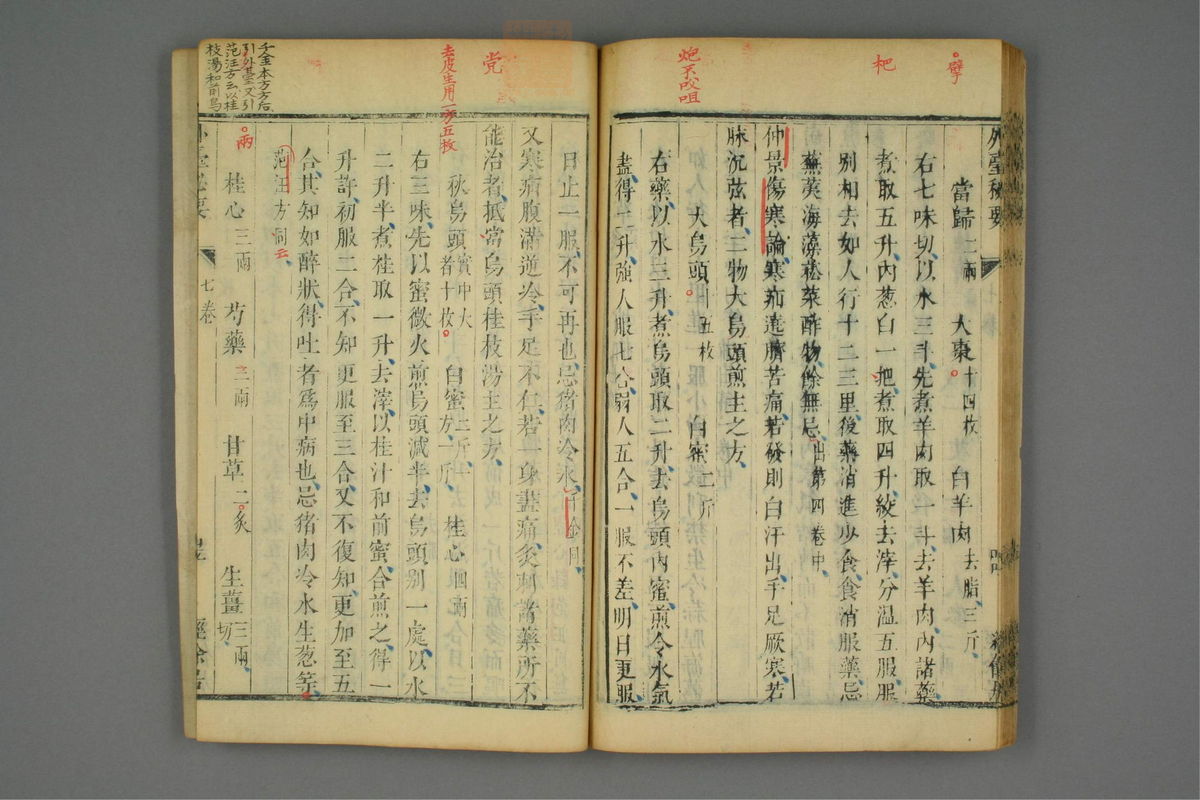 擘
杷
炮不㕮咀
外臺秘要
當歸二兩 大棗十四枚 白羊肉去脂三斤
右七味切以水三斗先煮羊肉取一斗去羊肉內諸藥
煮取五升內葱白一把煮取四升絞去滓分溫五服服
別相去如人行十二三里後藥消進少食食消服藥忌
蕪荑海藻菘菜酢物餘無忌出第四卷中
仲景傷寒論寒疝遶臍苦痛若發則白汗出手足厥寒若
脉沉弦者二物大烏頭煎主之方
大烏頭十五枚 白蜜二斤
右藥以水三升煮烏頭取二升去烏頭內蜜煎令水氣
盡得二升強人服七合弱人五合一服不差明日更服
日止一服不可再也忌猪肉冷水千金同
又寒疝腹滿逆冷手足不仁若一身盡痛灸刺諸藥所不
能治者抵當烏頭桂枝湯主之方
党
去皮生用一方五枚
秋烏頭實中大者十枚 白蜜二斤一方一斤 桂心四兩
右三味先以蜜微火煎烏頭減半去烏頭別一處以水
二升半煮桂取一升去滓以桂汁和前蜜合煎之得一
升許初服二合不知更服至三合又不復知更加至五
合其知如醉狀得吐者爲中病也忌猪肉冷水生葱等
范汪方同云
千金本方方后
引外臺又引
范汪方云以桂
枝湯和前烏
兩
桂心三兩 芍藥三兩 甘草二炙 生薑三兩切
七卷
經餘居